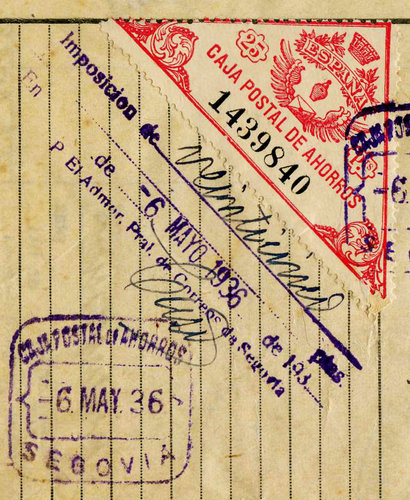 25
ESPAÑA
CAJA POSTAL DE AHORROS
1439840
Imposición de veinticinco ptas.
En de -6 MAYO 1936 de 193
P. El Admor. Pral. de Correos de Segovia
CAJA POSTAL DE AHORROS
-6
SE
CAJA POSTAL DE AHORROS
-6 MAY. 36
SEGOVIA